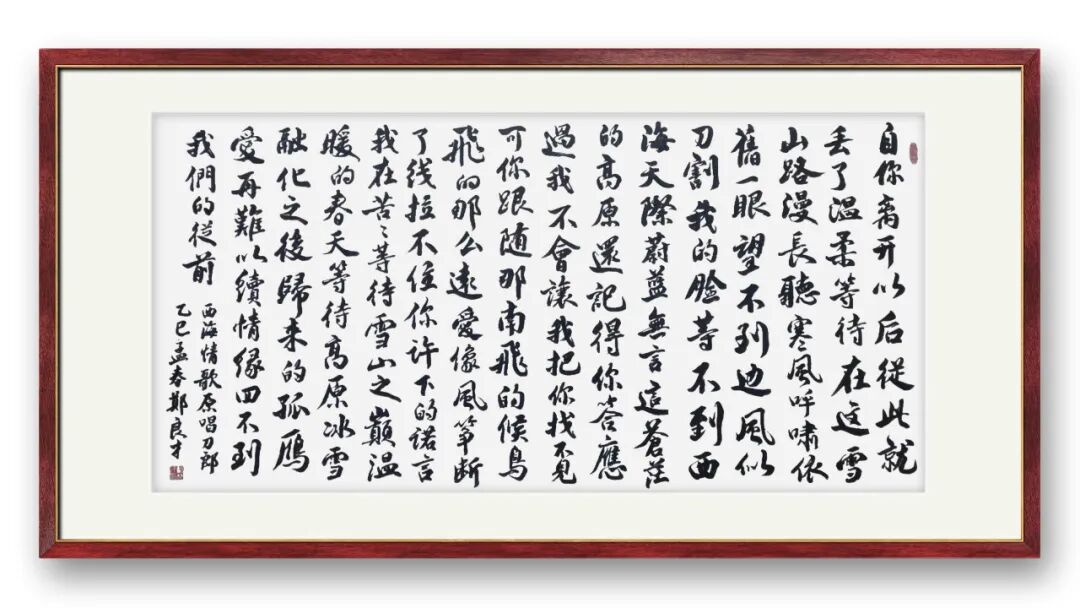 自你离开以后從此就
丢了温柔等待在这雪
山路漫長聽寒風呼嘯依
舊一眼望不到边風似
刀割我的脸等不到西
海天際蔚蓝無言這蒼茫
的高原還記得你答應
過我不會讓我把你找不見
可你跟随那南飛的候鳥
飛的那么遠愛像風筝断
了线拉不住你许下的诺言
我在苦〻等待雪山之巔温
暖的春天等待高原冰雪
融化之後歸来的孤雁
愛再難以續情缘回不到
我們的従前
西海情歌原唱刀郎
乙巳孟春鄭良才